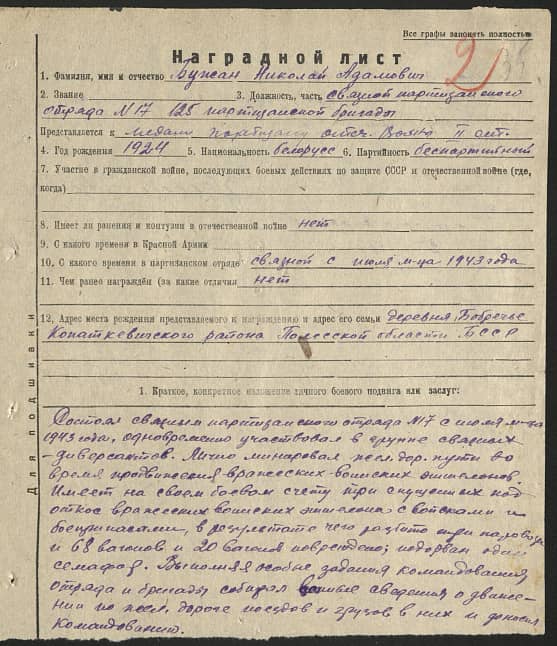 Все графы заполнять полностью
Наградной лист
2
1. Фамилия, имя и отчество Бужан Николай Адамович
2. Звание 3. Должность, часть связной партизанского
отряда №17 125 партизанской бригады
Представляется к медали партизану отеч. войны II ст.
4. Год рождения 1924 5. Национальность белорусс 6. Партийность беспартийный
7. Участие в гражданской войне, последующих боевых действиях по защите СССР и отечественной войне (где,
когда)
8. Имеет ли ранения и контузии в отечественной войне нет
9. С какого времени в Красной Армии
10. С какого времени в партизанском отряде связной с июля м-ца 1943 года
11. Чем ранее награждён (за какие отличия нет
12. Адрес места рождения представляемого к награждению и адрес его семьи деревня Бобречье
Копаткевичского района Полесской области БССР
Для подшивки
1. Краткое, конкретное изложение личного боевого подвига или заслуг:
Состоял связным партизанского отряда №17 с июля м-ца
1943 года, одновременно участвовал в группе связных
-диверсантов. Лично минировал жел. дор. пути во
время продвижения вражеских воинских эшелонов.
Имеет на своем боевом счету три спущенных под
откос вражеских воинских эшелона с войсками и
боеприпасами, в результате чего разбито три паровоза
и 68 вагонов и 20 вагонов повреждено; подорван один
семафор. Выполняя особые задания командования
отряда и бригады собирал сведения о движе-
нии по жел. дороге поездов и грузов в них и доносил
командованию.